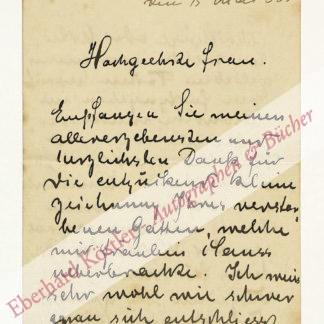 den 15 Mai
Hochgeehrte Frau.
Empfangen Sie meinen
allerergebensten und
herzlichsten Dank für
die entzückende kleine
Zeichnung Ihres verstor-
benen Gatten, welche
mir Fräulein Clauss
überbrachte. Ich weiss
sehr wohl wie schwer
man sich entschliesst
Eberhard Köstler - Autographen & Bücher